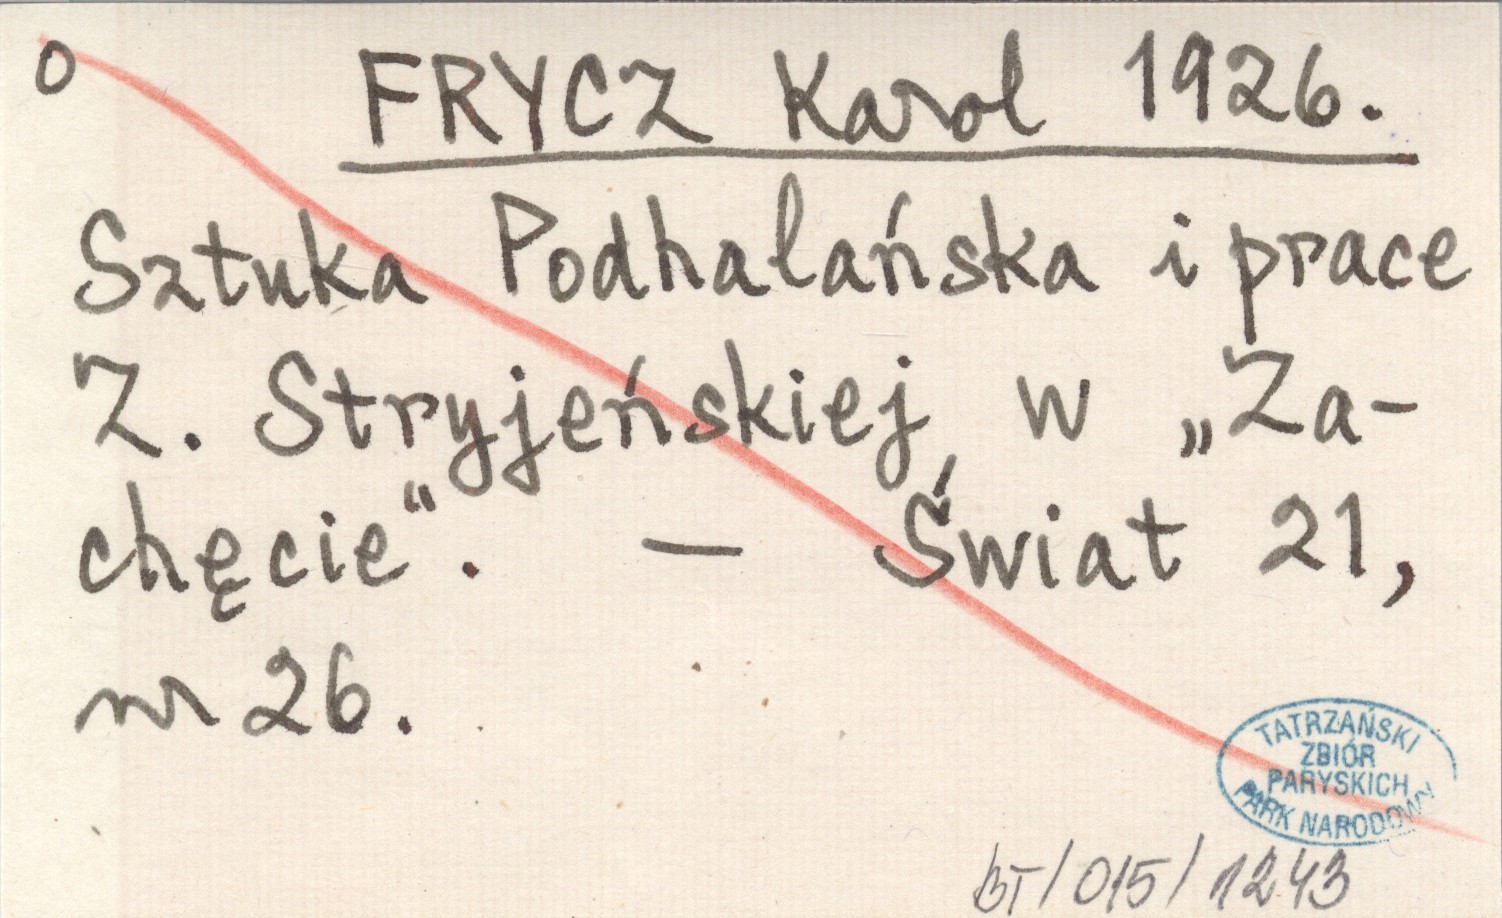 o
FRYCZ Karol 1926.
Sztuka Podhalańska i prace
Z. Stryjeńskiej w „Za-
chęcie“. — Świat 21,
nr 26.
TATRZAŃSKI
ZBIÓR
PARYSKICH
PARK NARODOWY
BT/015/1243